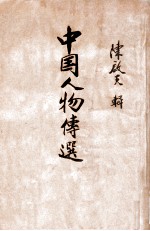 中国人物傳選
陳啟天 輯